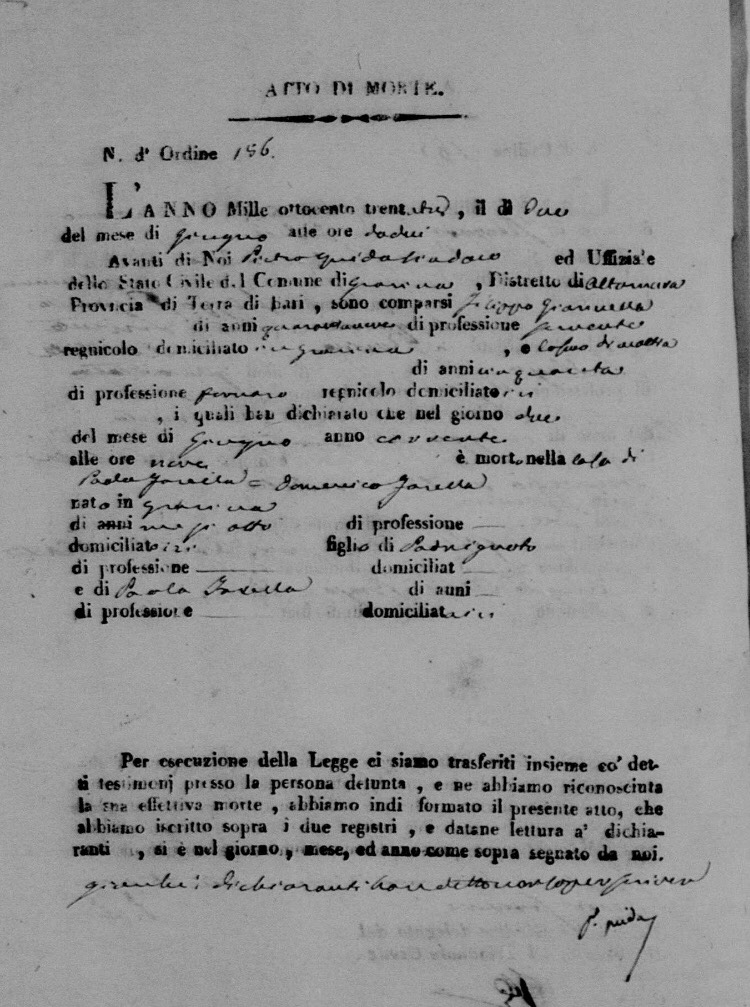 ATTO DI MORTE.
N. d' Ordine 186.
L'ANNO Mille ottocento trenta , il dì Due
del mese di Giugno alle ore dodici
Avanti di Noi Pietro Guida Sindaco ed Uffiziale
dello Stato Civile del Comune di Gravina , Distretto di Altamura
Provincia di Terra di Bari , sono comparsi Filippo Giannella
di anni di professione
regnicolo domiciliato in Gravina , e
di anni cinquanta
di professione fornaro regnicolo domiciliato ivi
, i quali han dichiarato che nel giorno due
del mese di Giugno anno corrente
alle ore nove è morto nella casa di
Paola = Domenico
nato in Gravina
di anni mesi otto di professione —
domiciliato ivi figlio di Padre ignoto
di professione — domiciliat —
e di Paola di anni —
di professione — domiciliat ivi
Per esecuzione della Legge ci siamo trasferiti insieme co' det-
ti testimonj presso la persona defunta , e ne abbiamo riconosciuta
la sua effettiva morte , abbiamo indi formato il presente atto, che
abbiamo iscritto sopra i due registri , e datane lettura a' dichia-
ranti , si è nel giorno , mese, ed anno come sopra segnato da noi.
dichiaranti han detto non saper scrivere
P. Guida